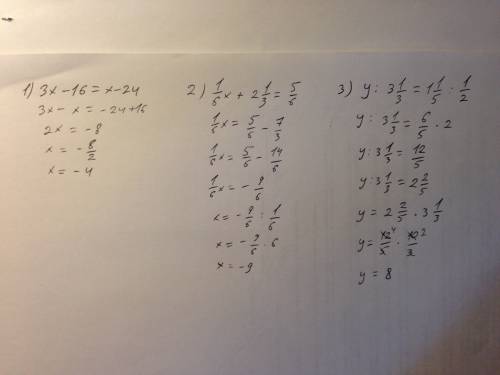 1) 3x - 16 = x - 24
3x - x = -24 + 16
2x = -8
x = -8/2
x = -4
2) 1/6 x + 2 1/3 = 5/6
1/6 x = 5/6 - 7/3
1/6 x = 5/6 - 14/6
1/6 x = -9/6
x = -9/6 : 1/6
x = -9/6 · 6
x = -9
3) y : 3 1/3 = 1 1/5 : 1/2
y : 3 1/3 = 6/5 · 2
y : 3 1/3 = 12/5
y : 3 1/3 = 2 2/5
y = 2 2/5 · 3 1/3
y = 12 4/5 · 10 2/3
y = 8